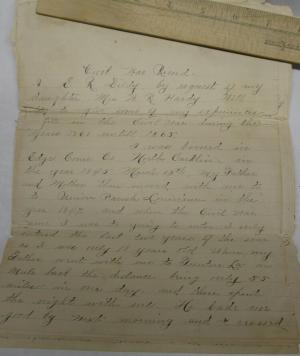 Civil War Record.
I E. R. Eddy by request of my
Daughter Mrs W. R. Hardy Will
try to give some of my experiences
in the Civil War during the
years 1861 untill 1865.
I was borned in
Edge Come Co. North Carolina in
the year 1845. March 15th My Father
and Mother then moved with me to
Parish Louisiana in the
year 1847 and when the Civil war
I was to young to enter I only
entered the last two years of the war
as I was only 18 years old when my
Father went with me to La on
Mule back the distance being only 55
miles in one day and then spent
the night with me. He bade me
good by next morning and I